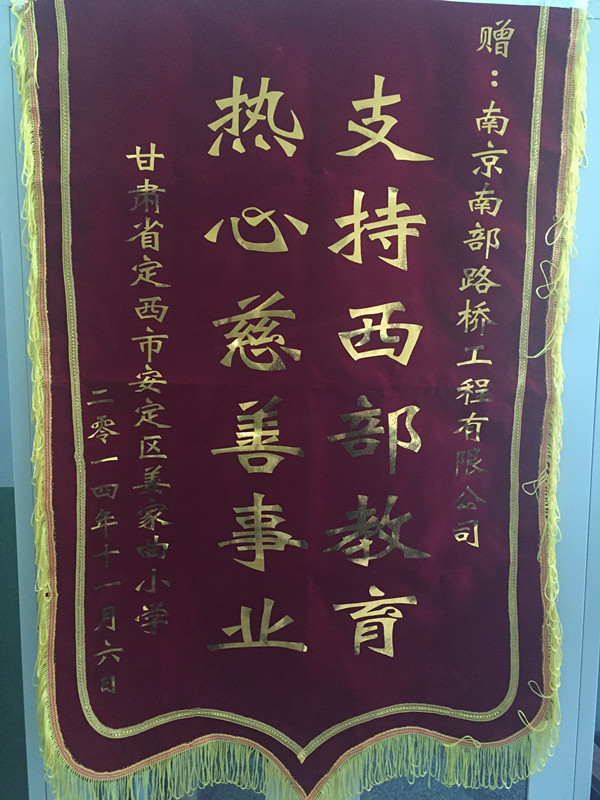 赠：南京南部路桥工程有限公司
支持西部教育
热心慈善事业
甘肃省定西市安定区姜家曲小学
二零一四年十一月六日